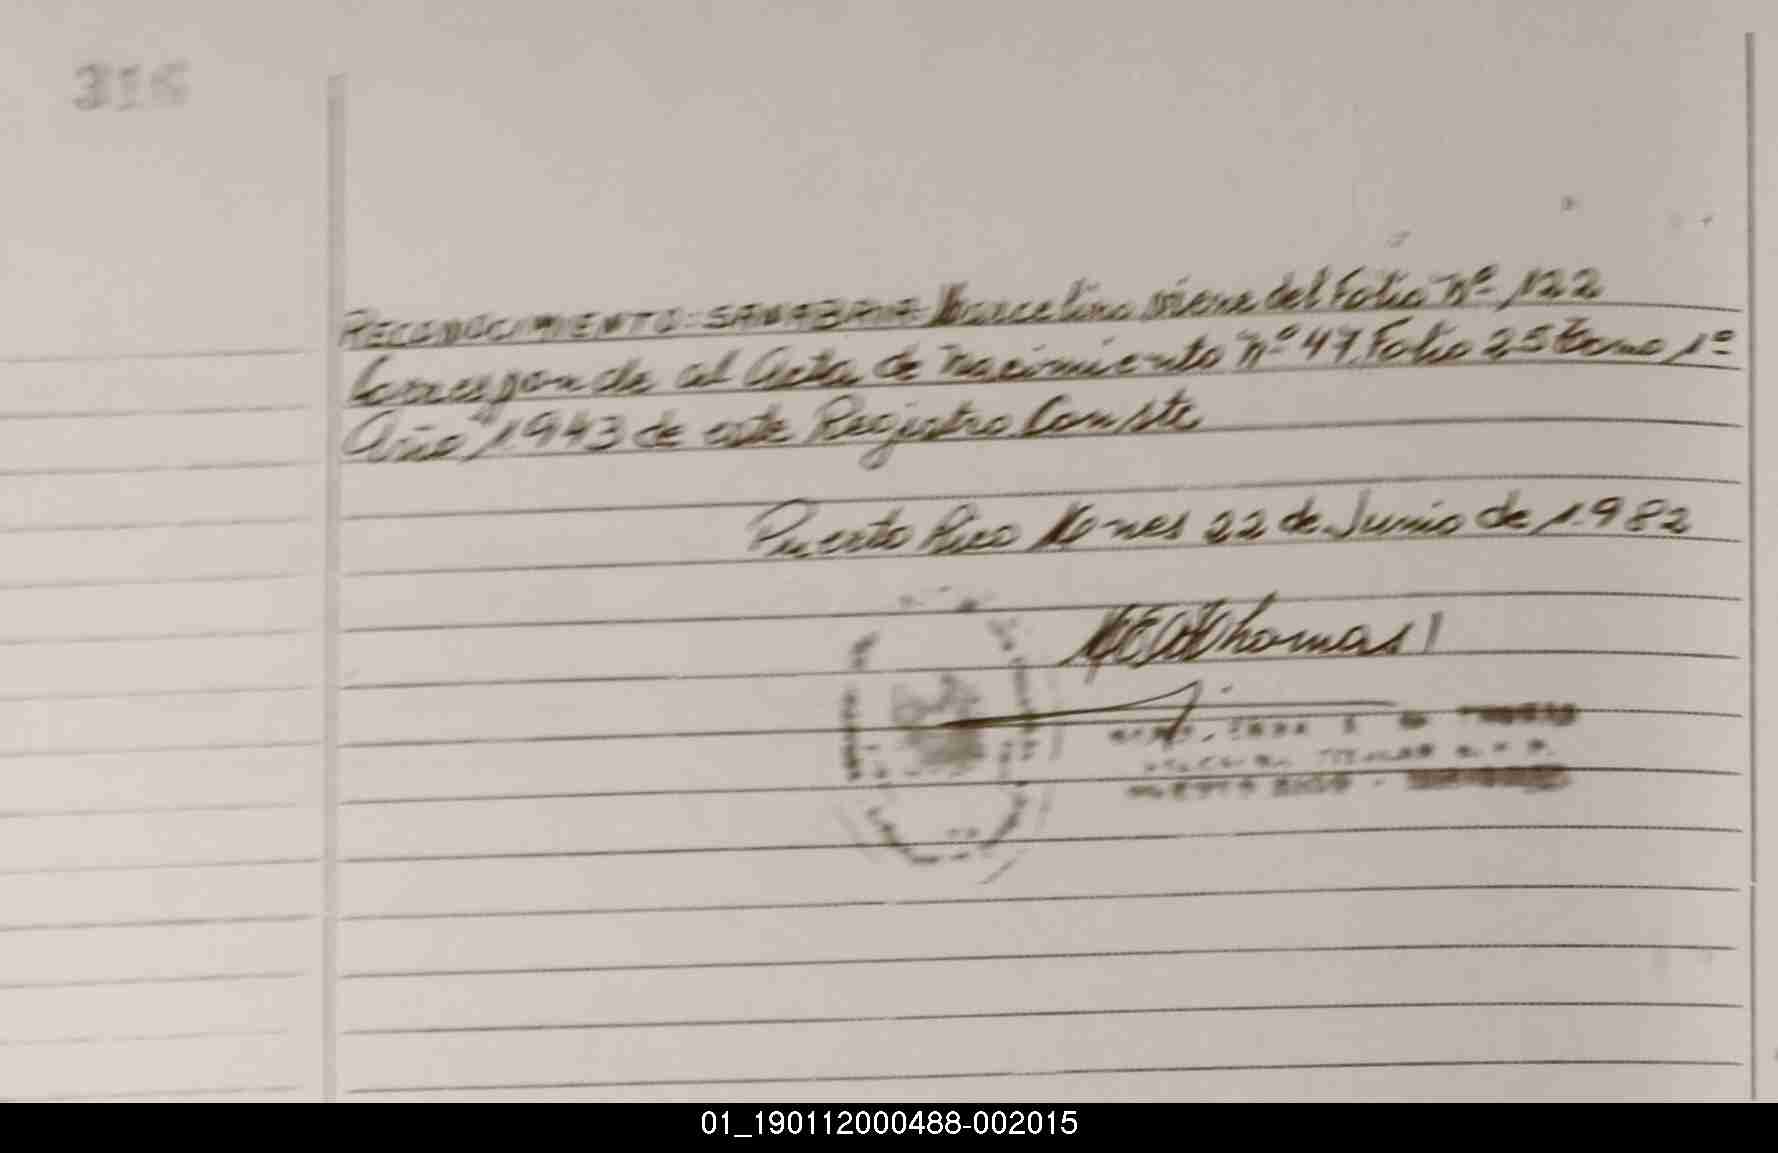 316
RECONOCIMIENTO: SANABRIA: Marcelino viene del Folio Nº 122
Corresponde al Acta de Nacimiento Nº 47, Folio 25 Tomo 1º
Año 1.943 de este Registro Conste
Puerto Rico Mnes 22 de Junio de 1.982
PUERTO RICO -
01_190112000488-002015